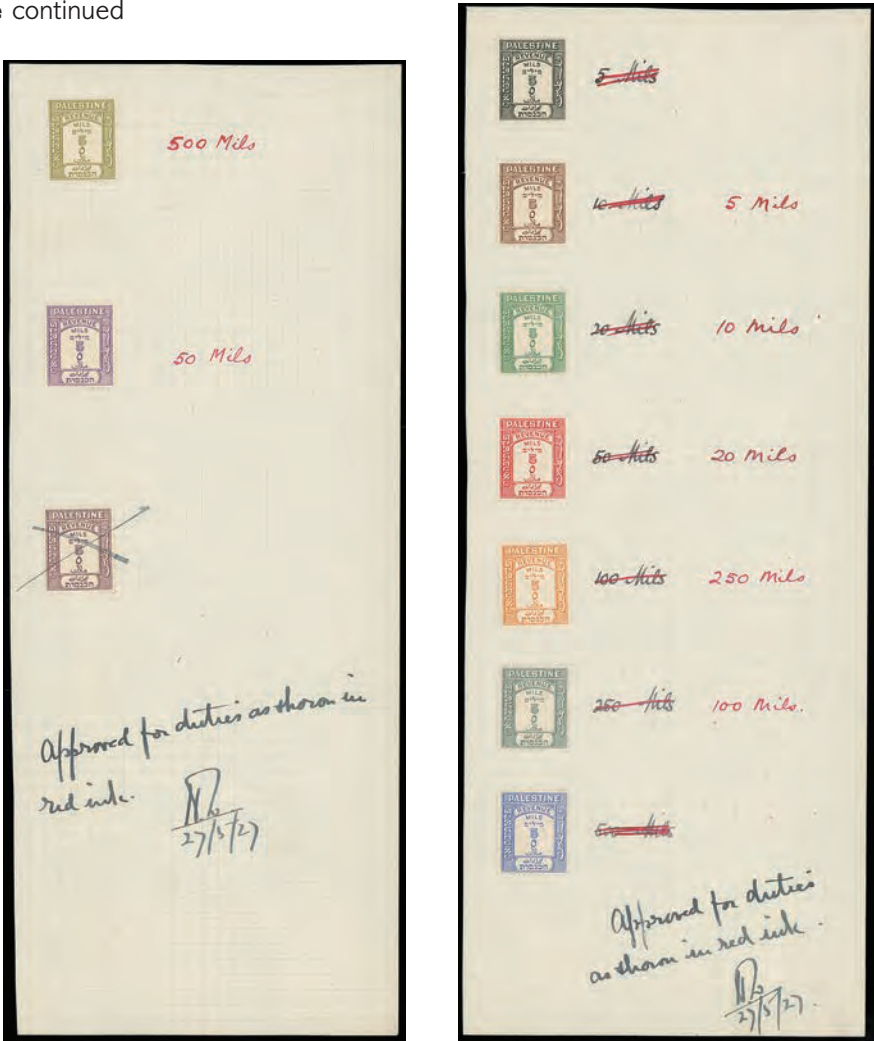 continued
PALESTINE
REVENUE
MILS
מילים
5
0
הכנסרת
500 Mils
PALESTINE
REVENUE
MILS
מילים
5
0
הכנסרת
50 Mils
PALESTINE
REVENUE
MILS
מילים
5
0
הכנסרת
Approved for duties as shown in
red ink.
27/5/27
PALESTINE
REVENUE
MILS
מילים
5
0
5 Mils
PALESTINE
REVENUE
MILS
מילים
5
0
10 Mils 5 Mils
PALESTINE
REVENUE
MILS
מילים
5
0
20 Mils 10 Mils
PALESTINE
REVENUE
MILS
מילים
5
0
50 Mils 20 Mils
PALESTINE
REVENUE
MILS
מילים
5
0
100 Mils 250 Mils
PALESTINE
REVENUE
MILS
מילים
5
0
250 Mils 100 Mils.
PALESTINE
REVENUE
MILS
מילים
5
0
500 Mils
Approved for duties
as shown in red ink.
27/5/27.